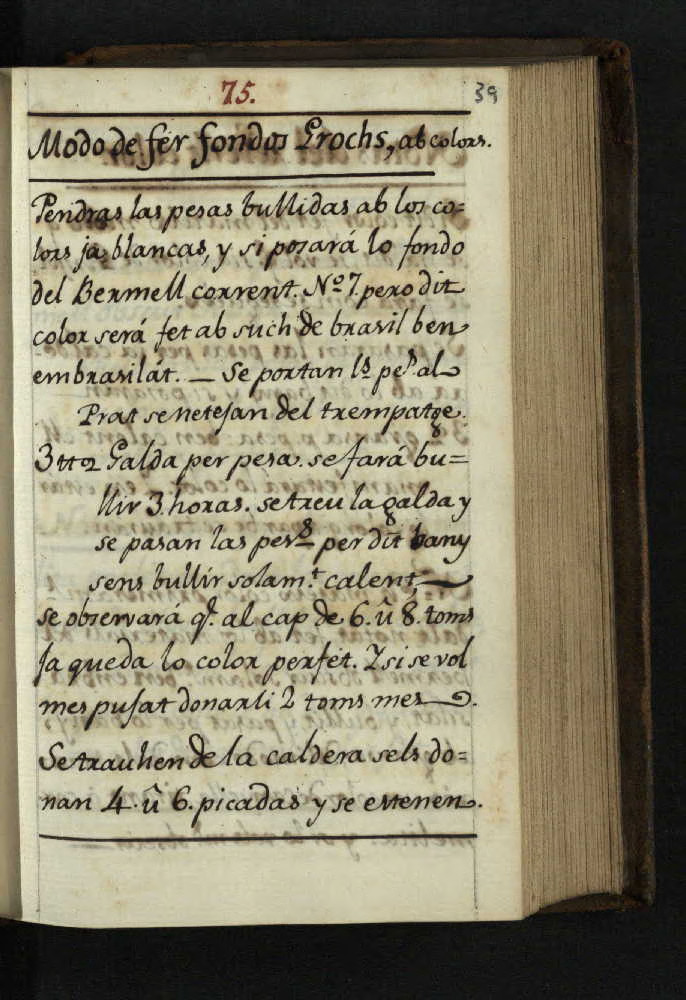 75.
39
Modo de fer fondos Grochs, ab colors.
Pendras las pesas bullidas ab los co=
lors ja blancas, y si posará lo fondo
del Bermell corrent. Nº 7. pero dit
color será fet ab such de brasil ben
embrasilát. — Se portan ls pes al
Prat se netejan del trempatge.
3 ttˢ Galda per pesa. se fará bu=
llir 3. horas. se treu la galda y
se pasan las pess per dit bany
sens bullir solamt calent, —
se observará q.e al cap de 6. û 8. toms
ja queda lo color perfet. Y si se vol
mes pujat donarli 2 toms mes.
Se trauhen de la caldera sels do=
nan 4. û 6. picadas y se estenen.